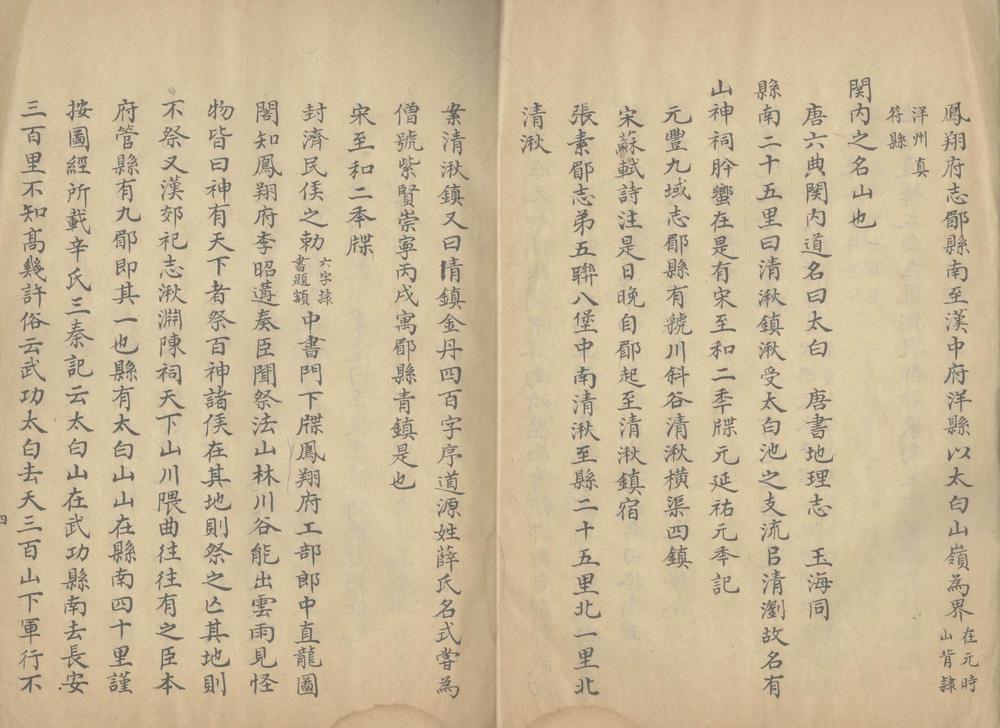 鳳翔府志郿縣南至漢中府洋縣以太白山嶺為界在元時山背隸
洋州真符縣
関内之名山也
唐六典関内道名曰太白　唐書地理志　玉海同
縣南二十五里曰清湫鎮湫受太白池之支流㠯清瀏故名有
山神祠肸蠁在是有宋至和二秊牒元延祐元秊記
元豐九域志郿縣有虢川斜谷清湫横渠四鎮
宋蘇軾詩注是日晚自郿起至清湫鎮宿
張素郿志弟五聯八堡中南清湫至縣二十五里北一里北
清湫
案清湫鎮又曰清鎮金丹四百字序道源姓薛氏名式嘗為
僧號紫賢崇寧丙戌寓郿縣青鎮是也
宋至和二秊牒
封濟民侯之勅六字隸書題額中書門下牒鳳翔府工部郎中直龍圖
閣知鳳翔府李昭遘奏臣聞祭法山林川谷能出雲雨見怪
物皆曰神有天下者祭百神諸侯在其地則祭之亾其地則
不祭又漢郊祀志湫淵陳祠天下山川隈曲往往有之臣本
府管縣有九郿即其一也縣有太白山山在縣南四十里謹
按圖經所載辛氏三秦記云太白山在武功縣南去長安
三百里不知髙幾許俗云武功太白去天三百山下軍行不
四